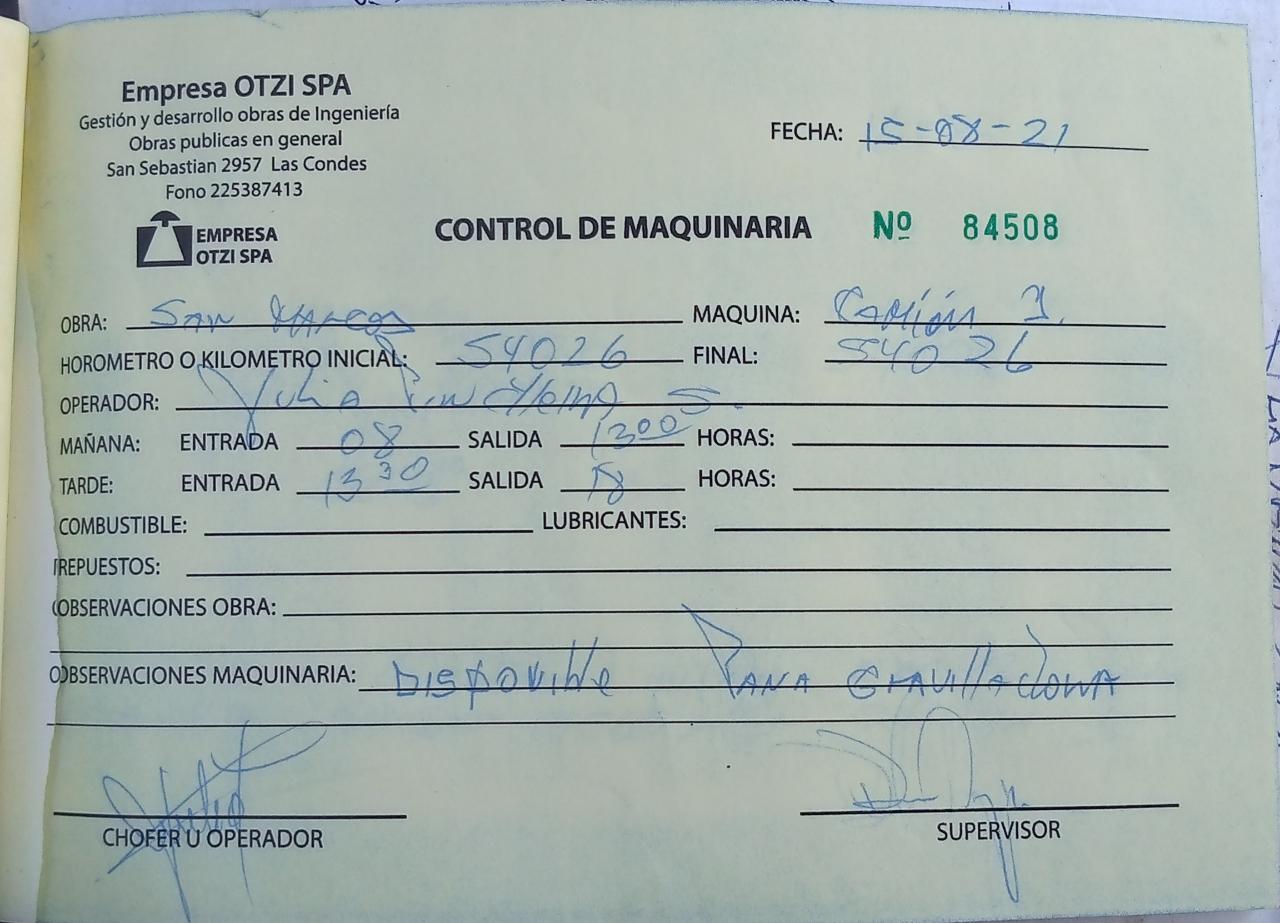 Empresa OTZI SPA
Gestión y desarrollo obras de Ingeniería
Obras publicas en general
San Sebastian 2957 Las Condes
Fono 225387413
EMPRESA
OTZI SPA
FECHA: 15-08-21
CONTROL DE MAQUINARIA Nº 84508
OBRA: San Marcos MAQUINA: Camión 1.
HOROMETRO O KILOMETRO INICIAL: 54026 FINAL: 54026
OPERADOR: Julio S.
MAÑANA: ENTRADA 08 SALIDA 13 00 HORAS:
TARDE: ENTRADA 13 30 SALIDA 18 HORAS:
COMBUSTIBLE: LUBRICANTES:
REPUESTOS:
OBSERVACIONES OBRA:
OBSERVACIONES MAQUINARIA: Disponible Para Gravilladora
CHOFER U OPERADOR
SUPERVISOR